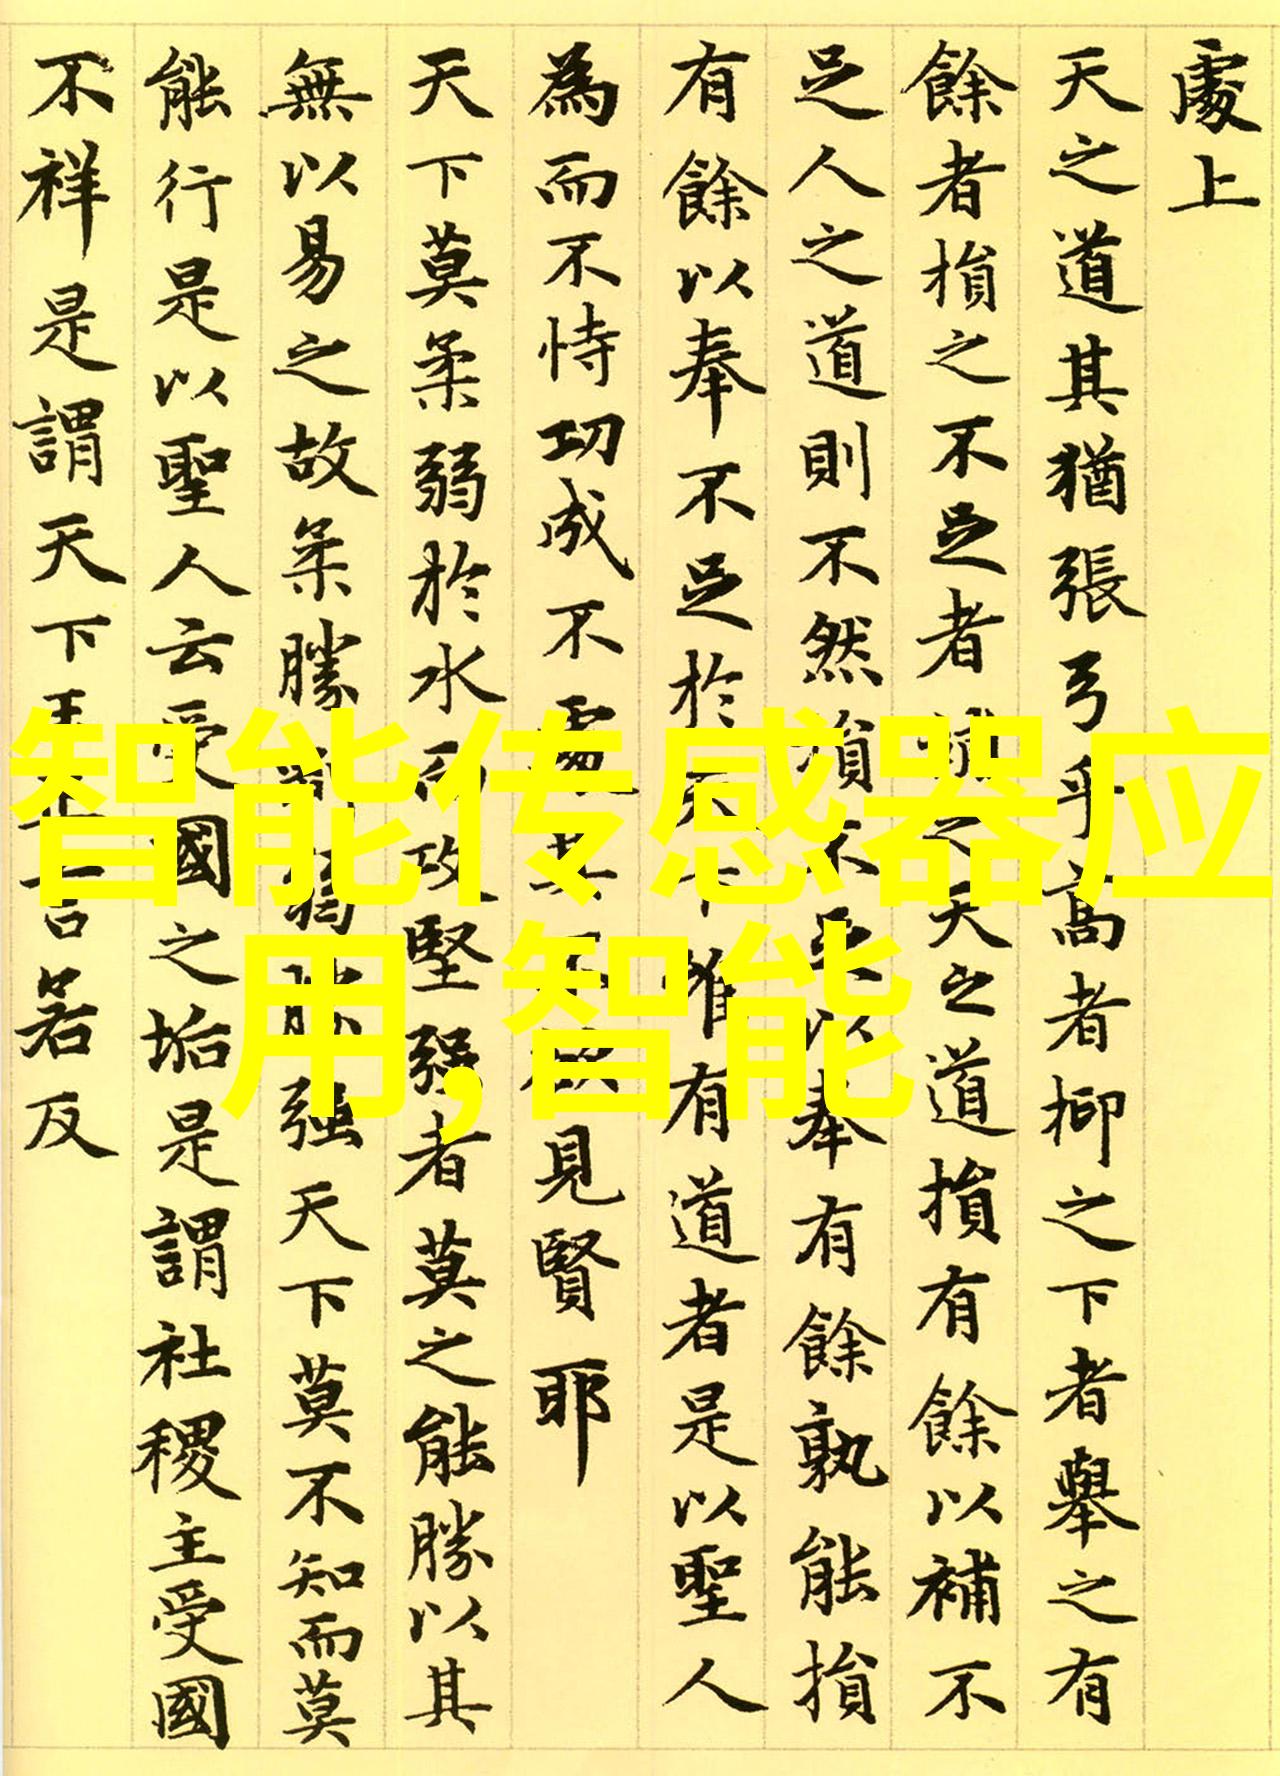 處上
天之道其猶張弓乎高者抑之下者舉之有
餘者損之不足者補之天之道損有餘以補不
足人之道則不然損不足以奉有餘孰能損
有餘以奉不足於天下唯有道者是以聖人
為而不恃功成不處其不欲見賢耶
天下莫柔弱於水而攻堅强者莫之能勝以其
無以易之故柔勝剛弱勝強天下莫不知而莫
能行是以聖人云受國之垢是謂社稷主受國
不祥是謂天下王正言若反
智能传感器应
用,智能